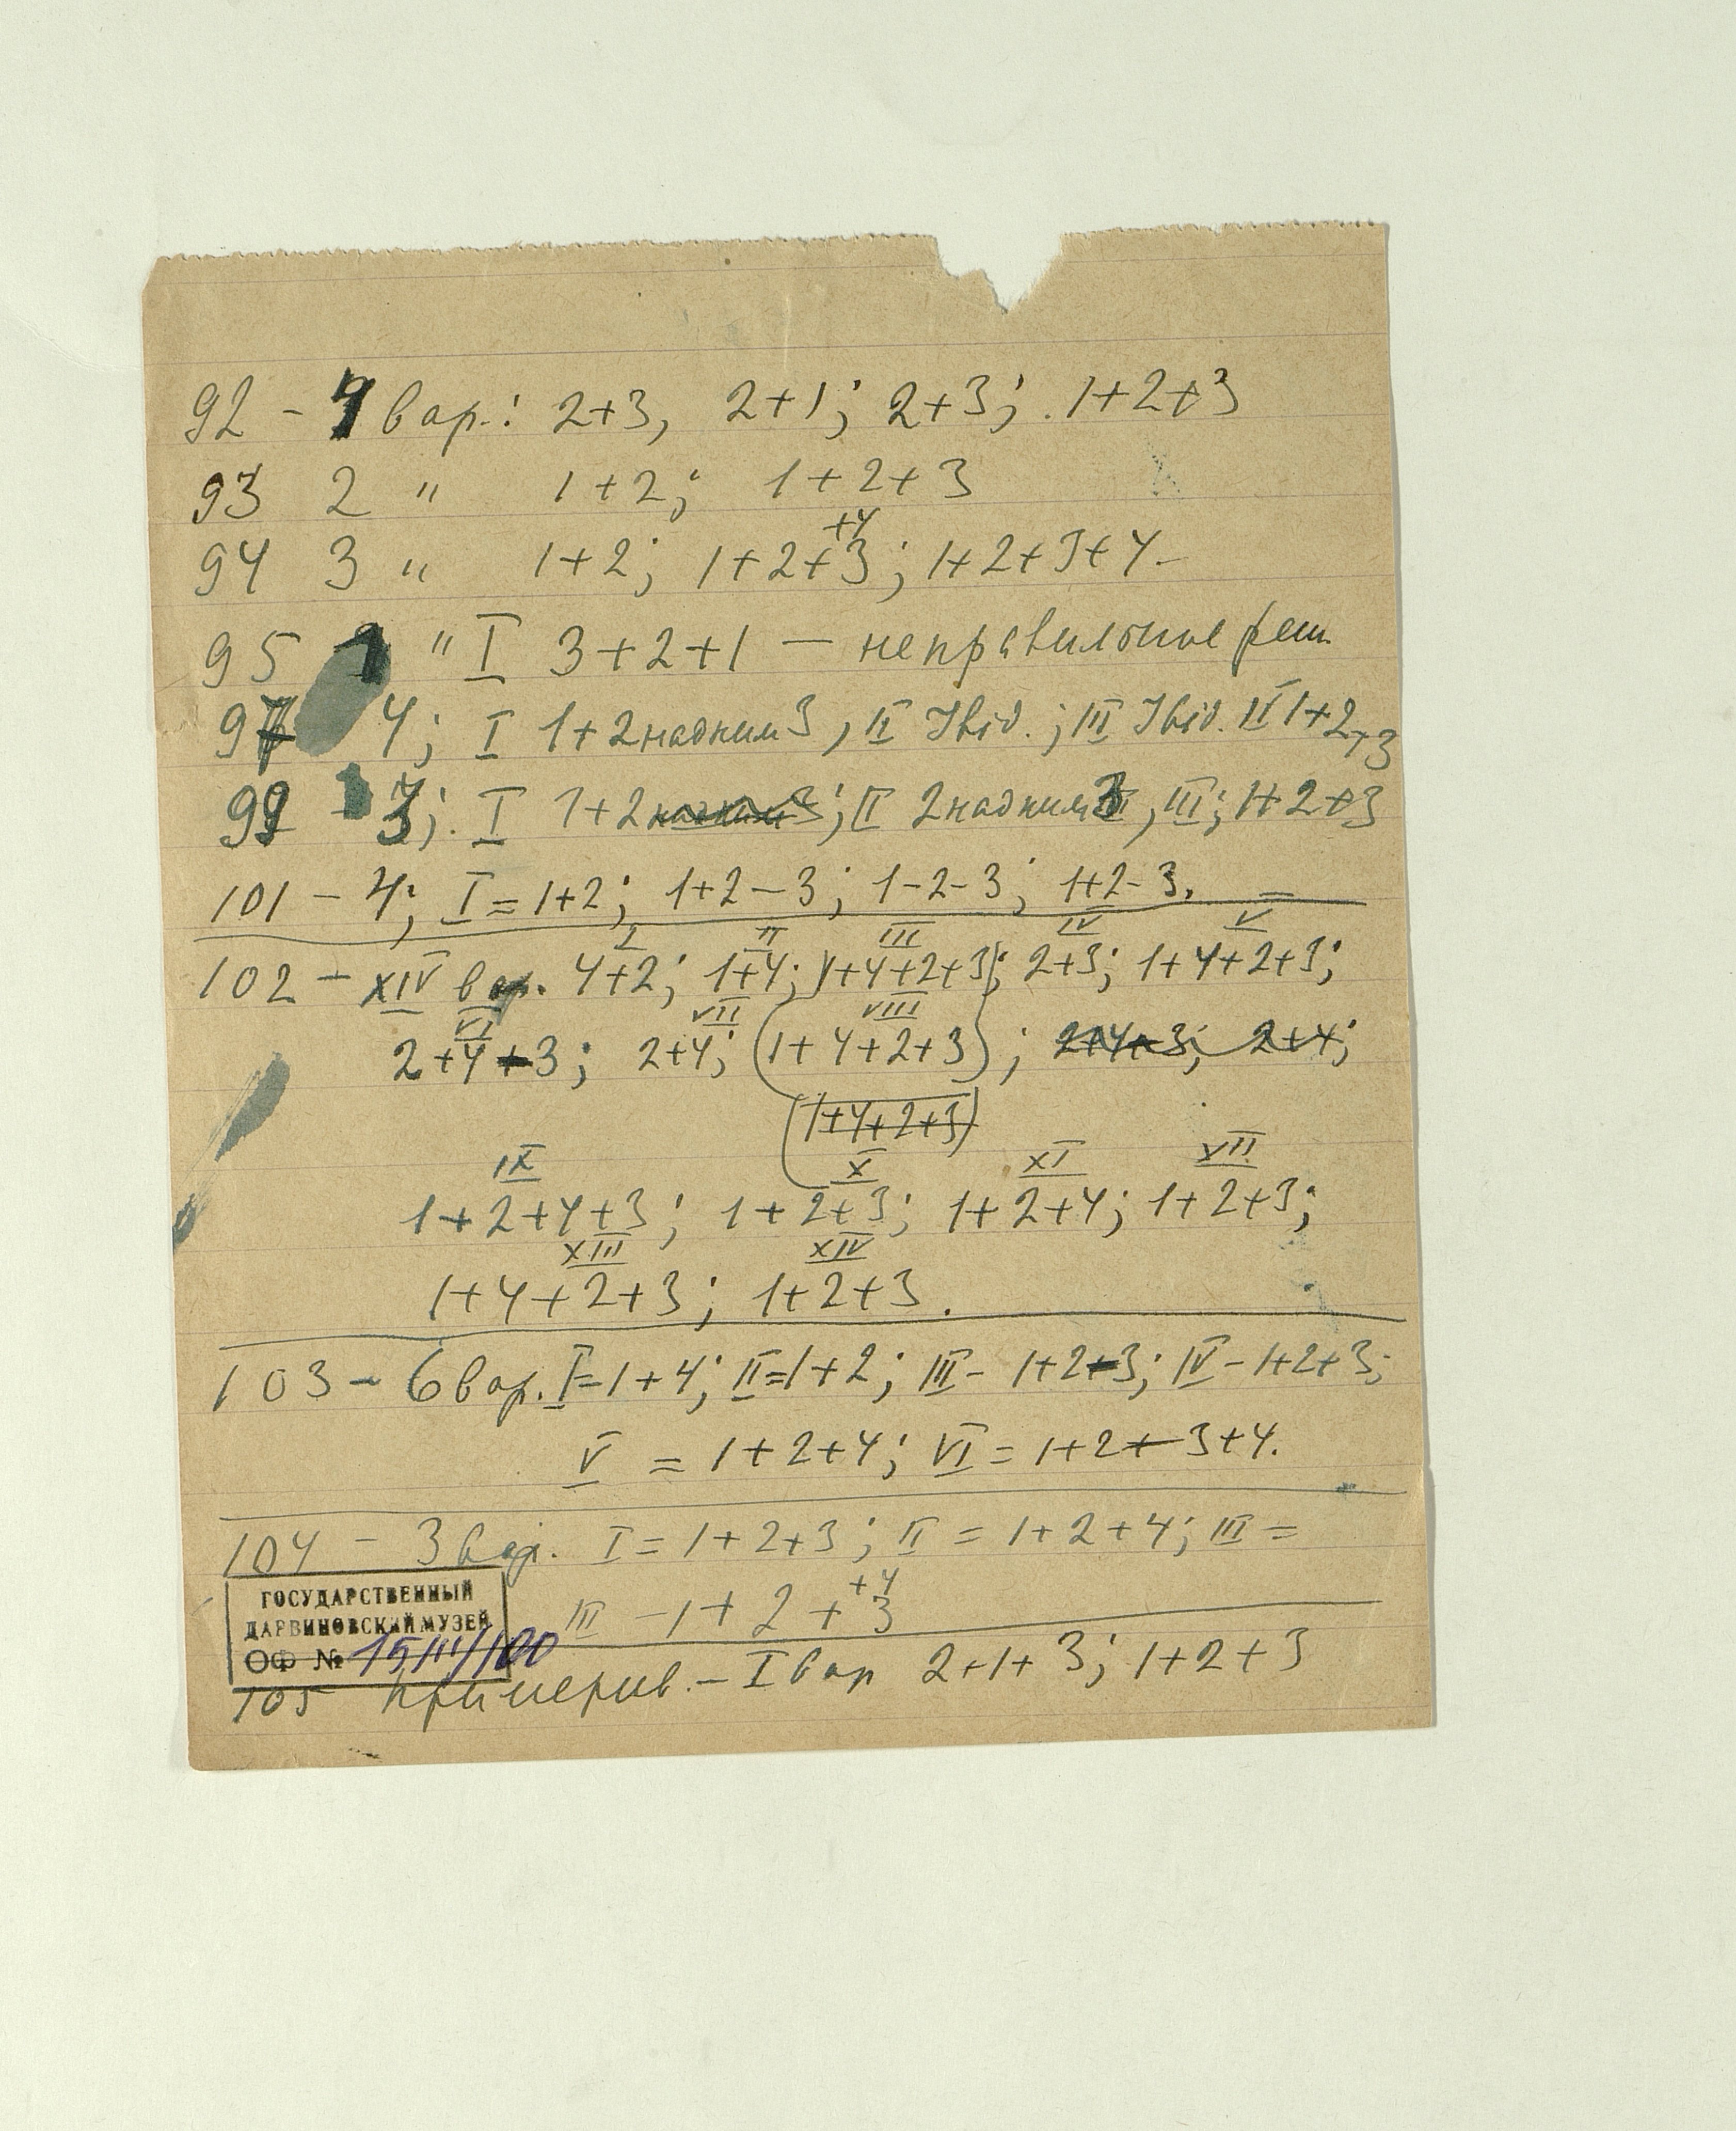 92 - 4 вар.: 2+3, 2+1; 2+3; 1+2+3
93 2 " 1+2; 1+2+3
+4
94 3 " 1+2; 1+2+3; 1+2+3+4-
95 1 " I 3+2+1 — неправильные реш.
97 4; I 1+2 над ним 3, II Ibid.; III Ibid. IV 1+2+3
99 - 3; I 1+2 над ним 3; II 2 над ним 3, III; 1+2+3
101 - 4; I = 1+2; 1+2-3; 1-2-3; 1+2-3.
I II III IV V
102 - XIV вар. 4+2; 1+4; 1+4+2+3; 2+3; 1+4+2+3;
VI VII VIII
2+4+3; 2+4; (1+4+2+3); 2+4+3; 2+4;
(1+4+2+3)
IX X XI XII
1+2+4+3; 1+2+3; 1+2+4; 1+2+3;
XIII XIV
1+4+2+3; 1+2+3.
103 - 6 вар. I=1+4; II=1+2; III - 1+2+3; IV - 1+2+3;
V = 1+2+4; VI = 1+2+3+4.
104 - 3 вар. I = 1+2+3; II = 1+2+4; III =
+4
III - 1+2+3
ГОСУДАРСТВЕННЫЙ
ДАРВИНОВСКИЙ МУЗЕЙ
ОФ № 15111/100
105 примерив. - I вар 2+1+3; 1+2+3